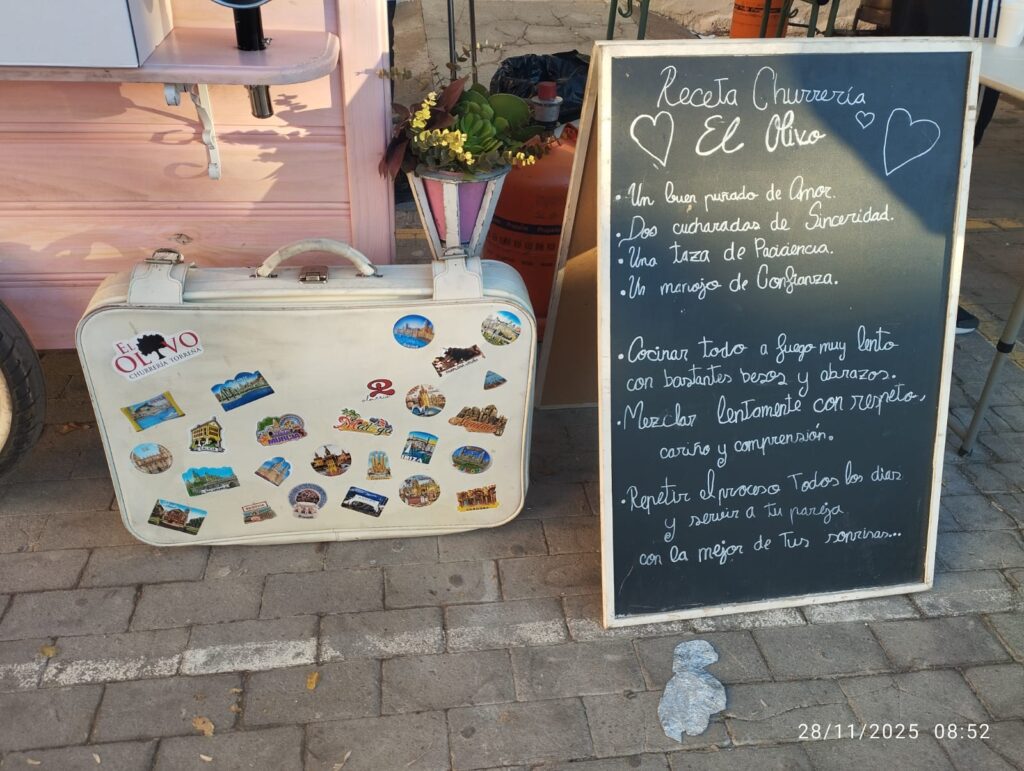 Receta Churrería
El Olivo
• Un buen puñado de Amor.
• Dos cucharadas de Sinceridad.
• Una taza de Paciencia.
• Un manojo de Confianza.
• Cocinar todo a fuego muy lento
con bastantes besos y abrazos.
• Mezclar lentamente con respeto,
cariño y comprensión.
• Repetir el proceso Todos los días
y servir a tu pareja
con la mejor de tus sonrisas...
EL
OLIVO
CHURRERÍA TORREÑA
MURCIA
28/11/2025 08:52